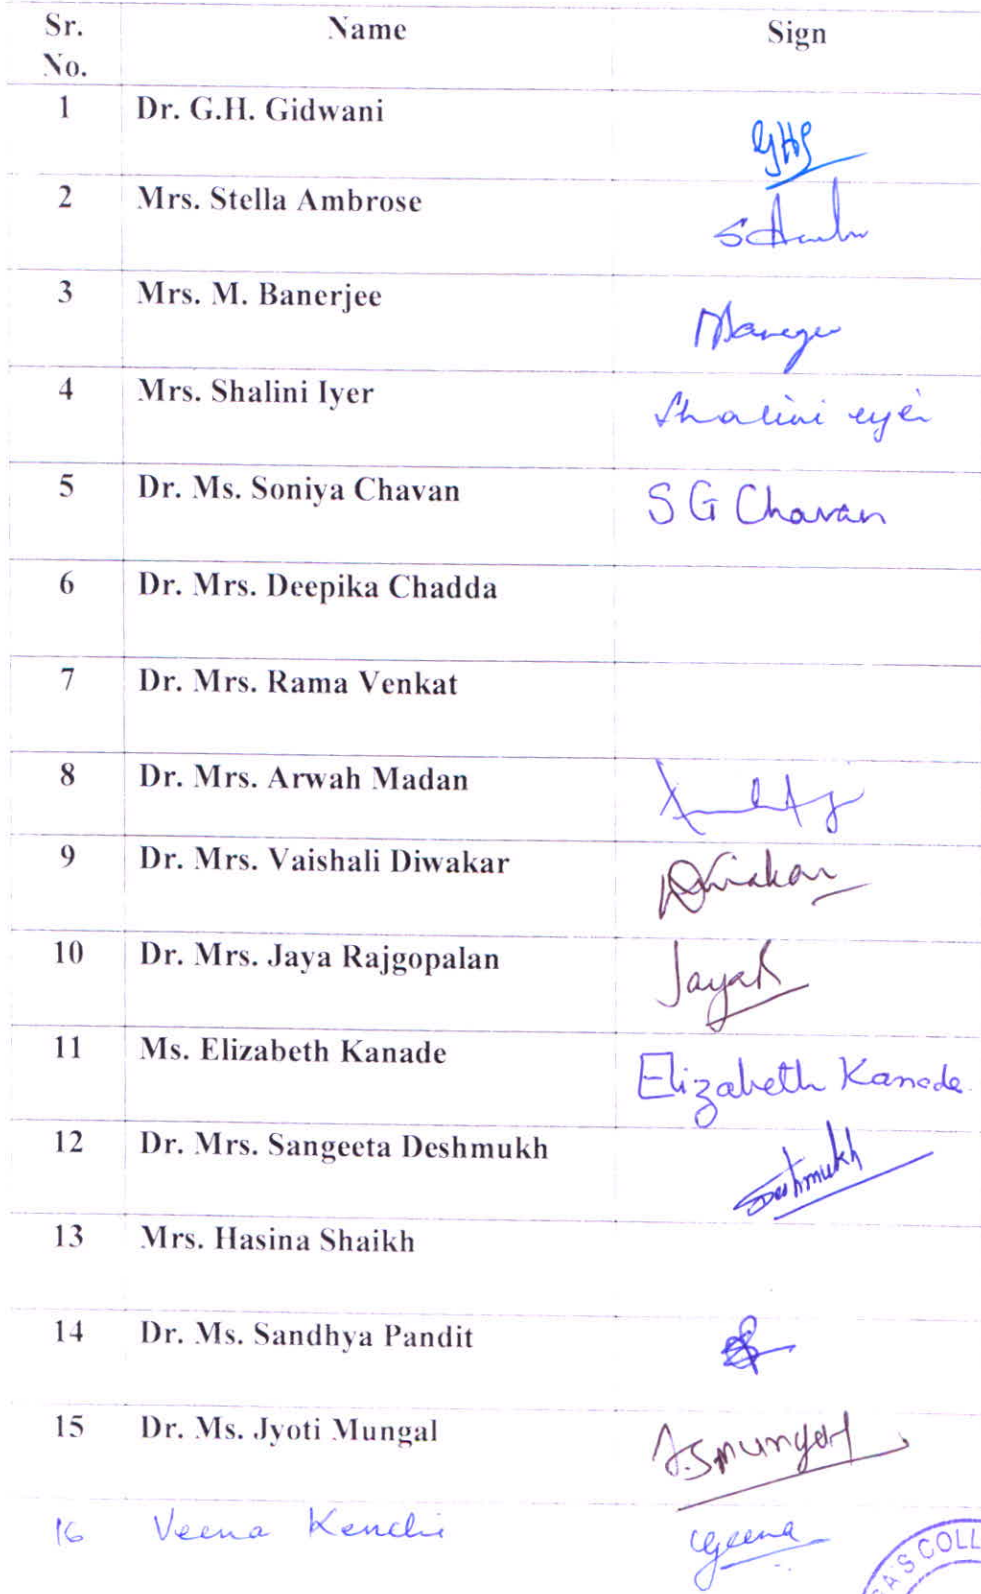 Sr. No. Name Sign
1 Dr. G.H. Gidwani GHG
2 Mrs. Stella Ambrose
3 Mrs. M. Banerjee
4 Mrs. Shalini Iyer Shalini
5 Dr. Ms. Soniya Chavan S G Chavan
6 Dr. Mrs. Deepika Chadda
7 Dr. Mrs. Rama Venkat
8 Dr. Mrs. Arwah Madan
9 Dr. Mrs. Vaishali Diwakar
10 Dr. Mrs. Jaya Rajgopalan JayaR
11 Ms. Elizabeth Kanade Elizabeth Kanade
12 Dr. Mrs. Sangeeta Deshmukh Deshmukh
13 Mrs. Hasina Shaikh
14 Dr. Ms. Sandhya Pandit
15 Dr. Ms. Jyoti Mungal J.S Mungal
16 Veena Kenchi Veena
A'S COLL